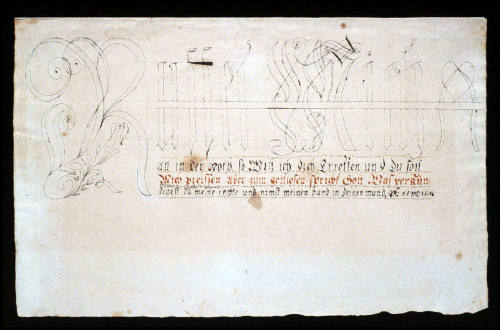 Ruffet Mich
an in der Noth so Will ich dich Erretten und du solt
Mich preissen Aber zum gottlosen spricht Gott Was verkün-
digest du meine rechte und nimst meinen bund in deinen mund,